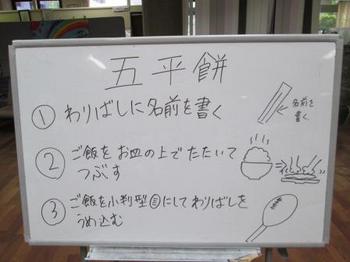 五平餅
① わりばしに名前を書く
名前を
書く
② ご飯をお皿の上でたたいて
つぶす
③ ご飯を小判型にしてわりばしを
うめ込む